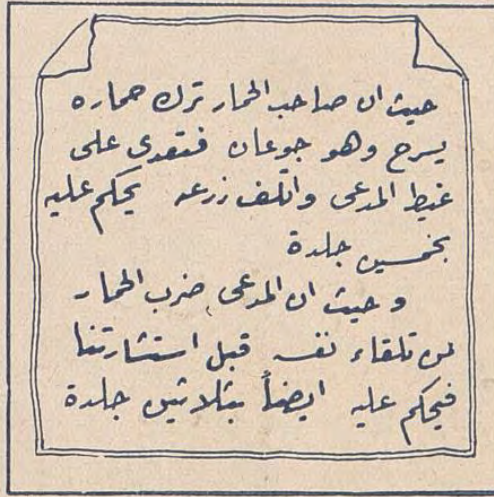 حيث ان صاحب الحمار ترك حماره
يسرح وهو جوعان فتعدى على
غيط المدعى واتلف زرعه يحكم عليه
بخمسين جلدة
وحيث ان المدعى ضرب الحمار
من تلقاء نفسه قبل استشارتنا
فيحكم عليه ايضاً بثلاثين جلدة